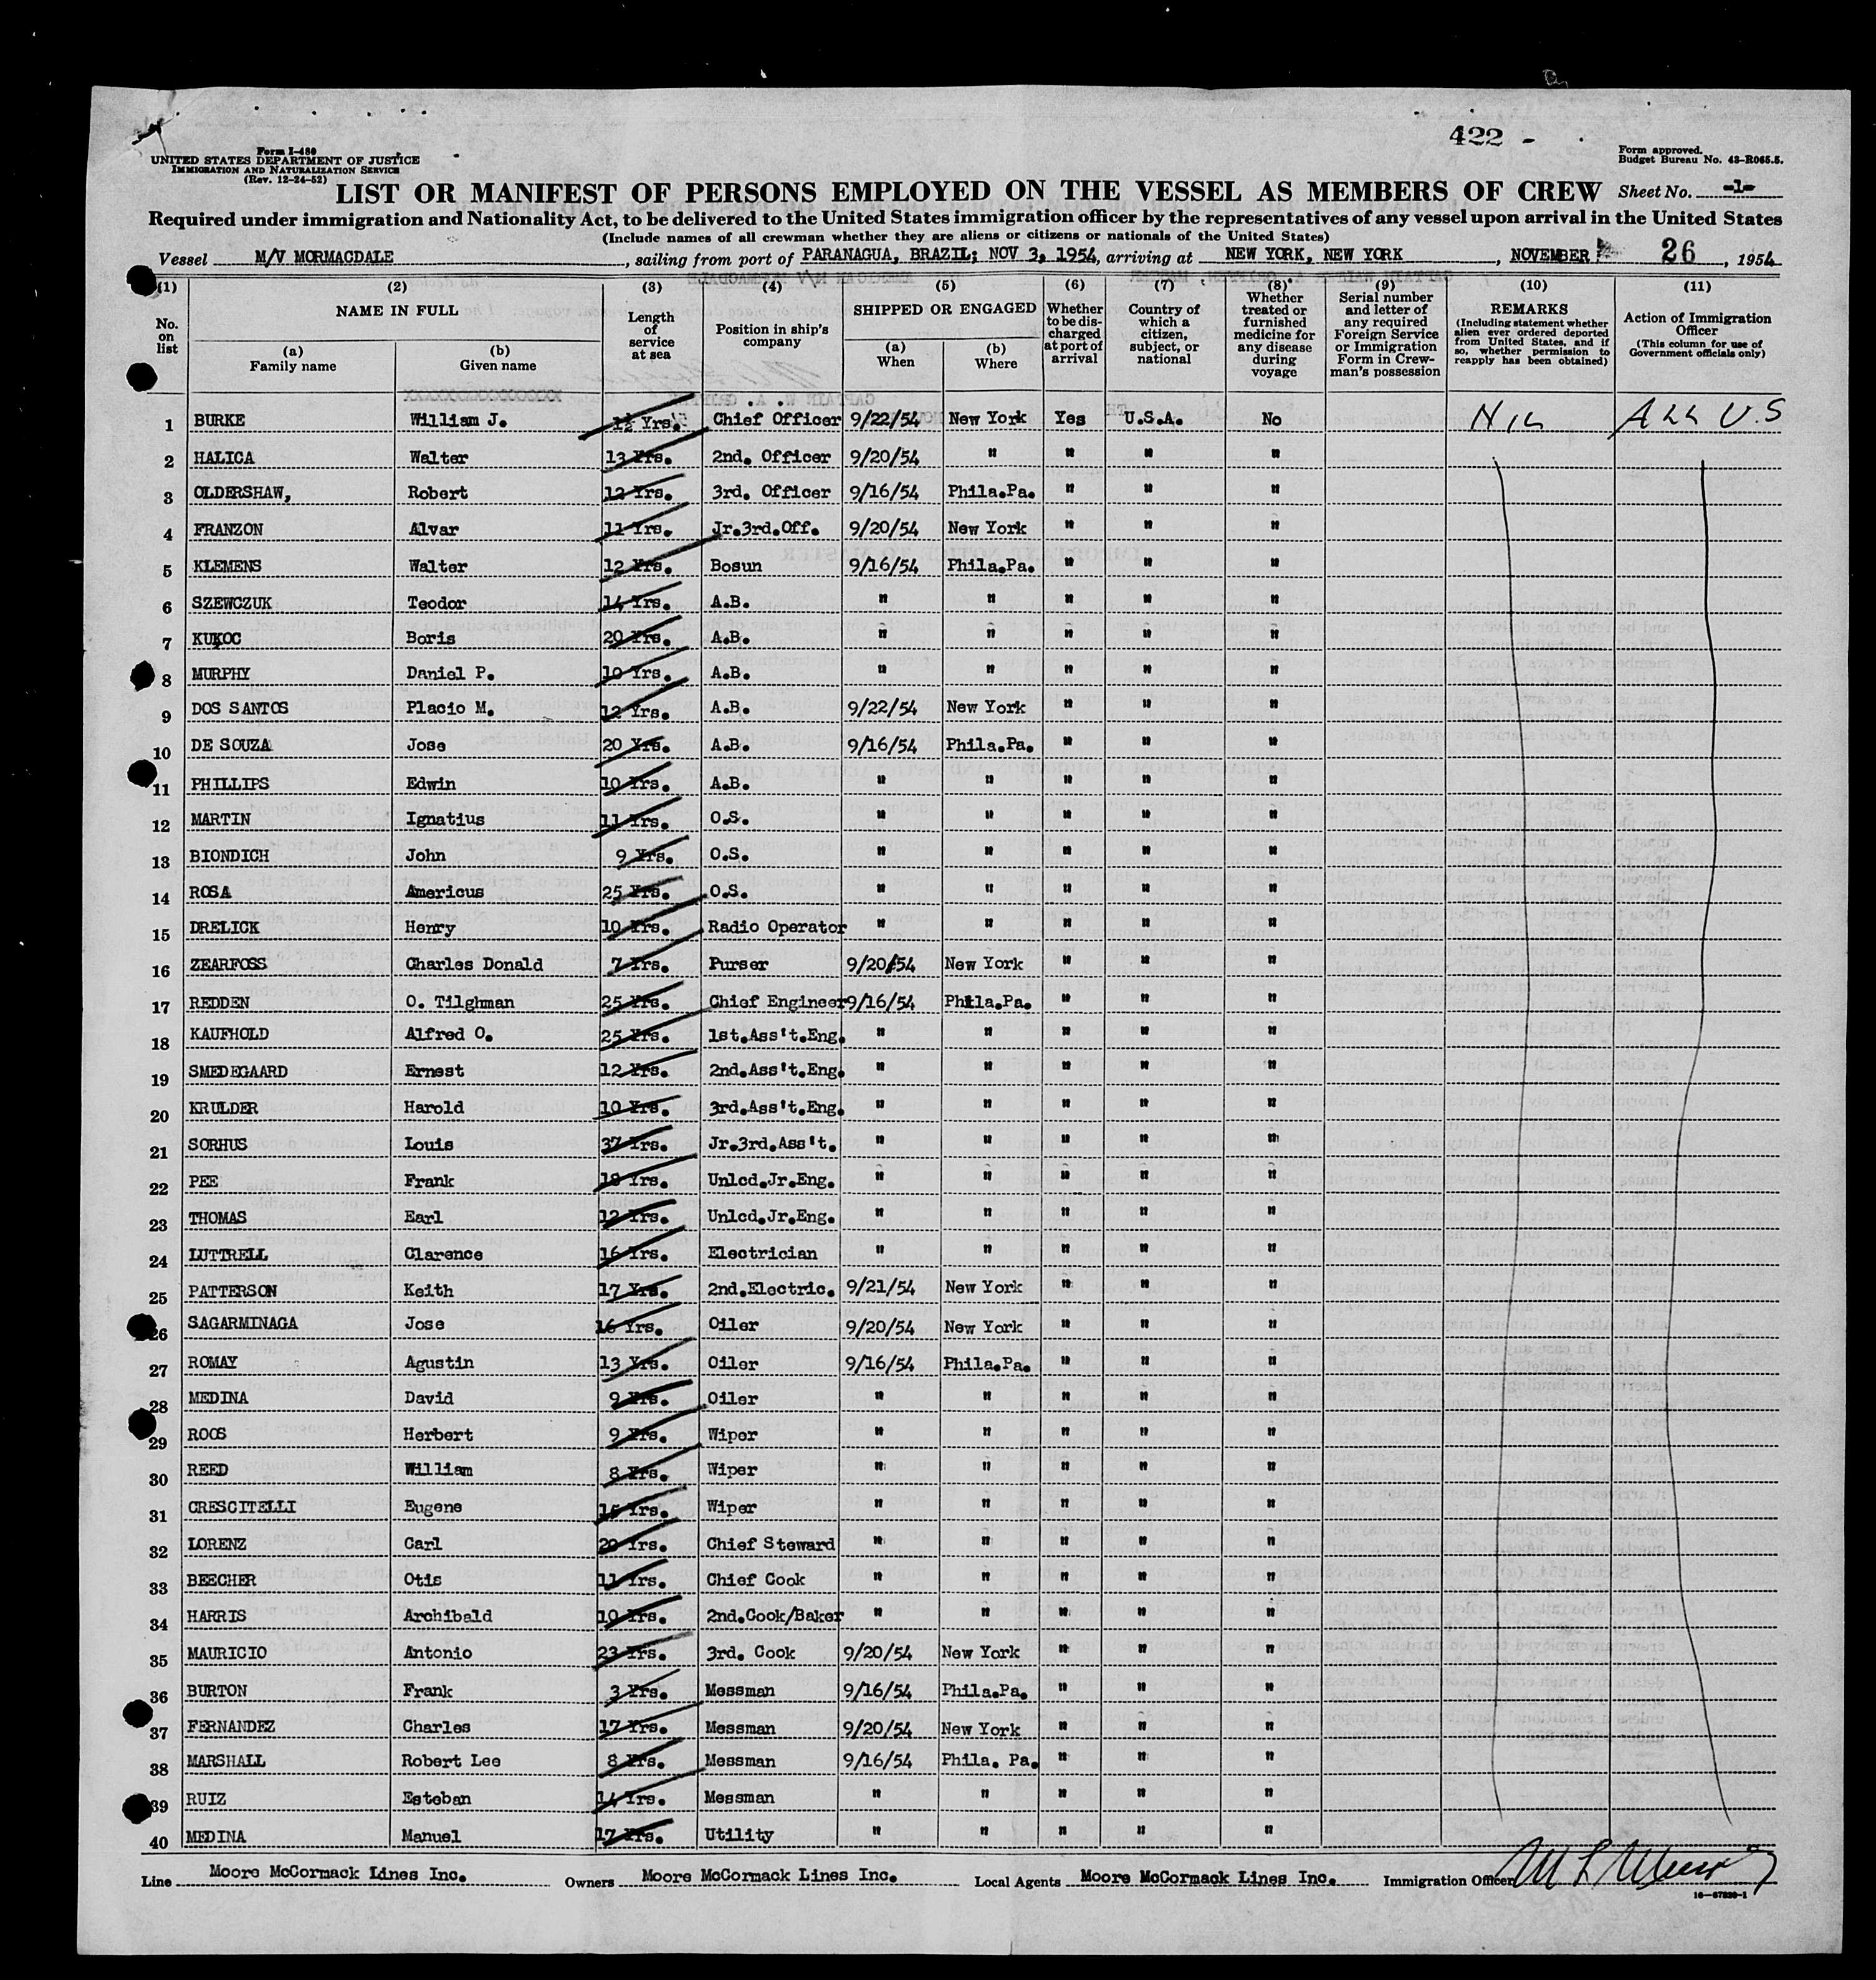 422 -
Form I-480
UNITED STATES DEPARTMENT OF JUSTICE
IMMIGRATION AND NATURALIZATION SERVICE
(Rev. 12-24-52)
Form approved.
Budget Bureau No. 43-R065.5.
LIST OR MANIFEST OF PERSONS EMPLOYED ON THE VESSEL AS MEMBERS OF CREW Sheet No. -1-
Required under immigration and Nationality Act, to be delivered to the United States immigration officer by the representatives of any vessel upon arrival in the United States
(Include names of all crewman whether they are aliens or citizens or nationals of the United States)
Vessel M/V MORMACDALE, sailing from port of PARANAGUA, BRAZIL; NOV 3, 1954, arriving at NEW YORK, NEW YORK, NOVEMBER 26, 1954
(1) No. on list
(2) NAME IN FULL (a) Family name (b) Given name
(3) Length of service at sea
(4) Position in ship's company
(5) SHIPPED OR ENGAGED (a) When (b) Where
(6) Whether to be discharged at port of arrival
(7) Country of which a citizen, subject, or national
(8) Whether treated or furnished medicine for any disease during voyage
(9) Serial number and letter of any required Foreign Service or Immigration Form in Crewman's possession
(10) REMARKS (Including statement whether alien ever ordered deported from United States, and if so, whether permission to reapply has been obtained)
(11) Action of Immigration Officer (This column for use of Government officials only)
1 BURKE William J. Yrs. Chief Officer 9/22/54 New York Yes U.S.A. No NIL ALL U.S
2 HALICA Walter 13 Yrs. 2nd. Officer 9/20/54 " " " "
3 OLDERSHAW, Robert 12 Yrs. 3rd. Officer 9/16/54 Phila.Pa. " " "
4 FRANZON Alvar 11 Yrs. Jr.3rd.Off. 9/20/54 New York " " "
5 KLEMENS Walter 12 Yrs. Bosun 9/16/54 Phila.Pa. " " "
6 SZEWCZUK Teodor 14 Yrs. A.B. " " " " "
7 KUKOC Boris 20 Yrs. A.B. " " " " "
8 MURPHY Daniel P. 10 Yrs. A.B. " " " " "
9 DOS SANTOS Placio M. 12 Yrs. A.B. 9/22/54 New York " " "
10 DE SOUZA Jose 20 Yrs. A.B. 9/16/54 Phila.Pa. " " "
11 PHILLIPS Edwin 10 Yrs. A.B. " " " " "
12 MARTIN Ignatius 11 Yrs. O.S. " " " " "
13 BIONDICH John 9 Yrs. O.S. " " " " "
14 ROSA Americus 25 Yrs. O.S. " " " " "
15 DRELICK Henry 10 Yrs. Radio Operator " " " " "
16 ZEARFOSS Charles Donald 7 Yrs. Purser 9/20/54 New York " " "
17 REDDEN O. Tilghman 25 Yrs. Chief Engineer 9/16/54 Phila.Pa. " " "
18 KAUFHOLD Alfred O. 25 Yrs. 1st.Ass't.Eng. " " " " "
19 SMEDEGAARD Ernest 12 Yrs. 2nd.Ass't.Eng. " " " " "
20 KRULDER Harold 10 Yrs. 3rd.Ass't.Eng. " " " " "
21 SORHUS Louis 37 Yrs. Jr.3rd.Ass't. " " " " "
22 PEE Frank 18 Yrs. Unlcd.Jr.Eng. " " " " "
23 THOMAS Earl 12 Yrs. Unlcd.Jr.Eng. " " " " "
24 LUTTRELL Clarence 16 Yrs. Electrician " " " " "
25 PATTERSON Keith 17 Yrs. 2nd.Electric. 9/21/54 New York " " "
26 SAGARMINAGA Jose 16 Yrs. Oiler 9/20/54 New York " " "
27 ROMAY Agustin 13 Yrs. Oiler 9/16/54 Phila.Pa. " " "
28 MEDINA David 9 Yrs. Oiler " " " " "
29 ROOS Herbert 9 Yrs. Wiper " " " " "
30 REED William 8 Yrs. Wiper " " " " "
31 CRESCITELLI Eugene 15 Yrs. Wiper " " " " "
32 LORENZ Carl 20 Yrs. Chief Steward " " " " "
33 BEECHER Otis 11 Yrs. Chief Cook " " " " "
34 HARRIS Archibald 10 Yrs. 2nd.Cook/Baker " " " " "
35 MAURICIO Antonio 23 Yrs. 3rd. Cook 9/20/54 New York " " "
36 BURTON Frank 3 Yrs. Messman 9/16/54 Phila.Pa. " " "
37 FERNANDEZ Charles 17 Yrs. Messman 9/20/54 New York " " "
38 MARSHALL Robert Lee 8 Yrs. Messman 9/16/54 Phila. Pa. " " "
39 RUIZ Esteban 14 Yrs. Messman " " " " "
40 MEDINA Manuel 17 Yrs. Utility " " " " "
Line Moore McCormack Lines Inc. Owners Moore McCormack Lines Inc. Local Agents Moore McCormack Lines Inc. Immigration Officer